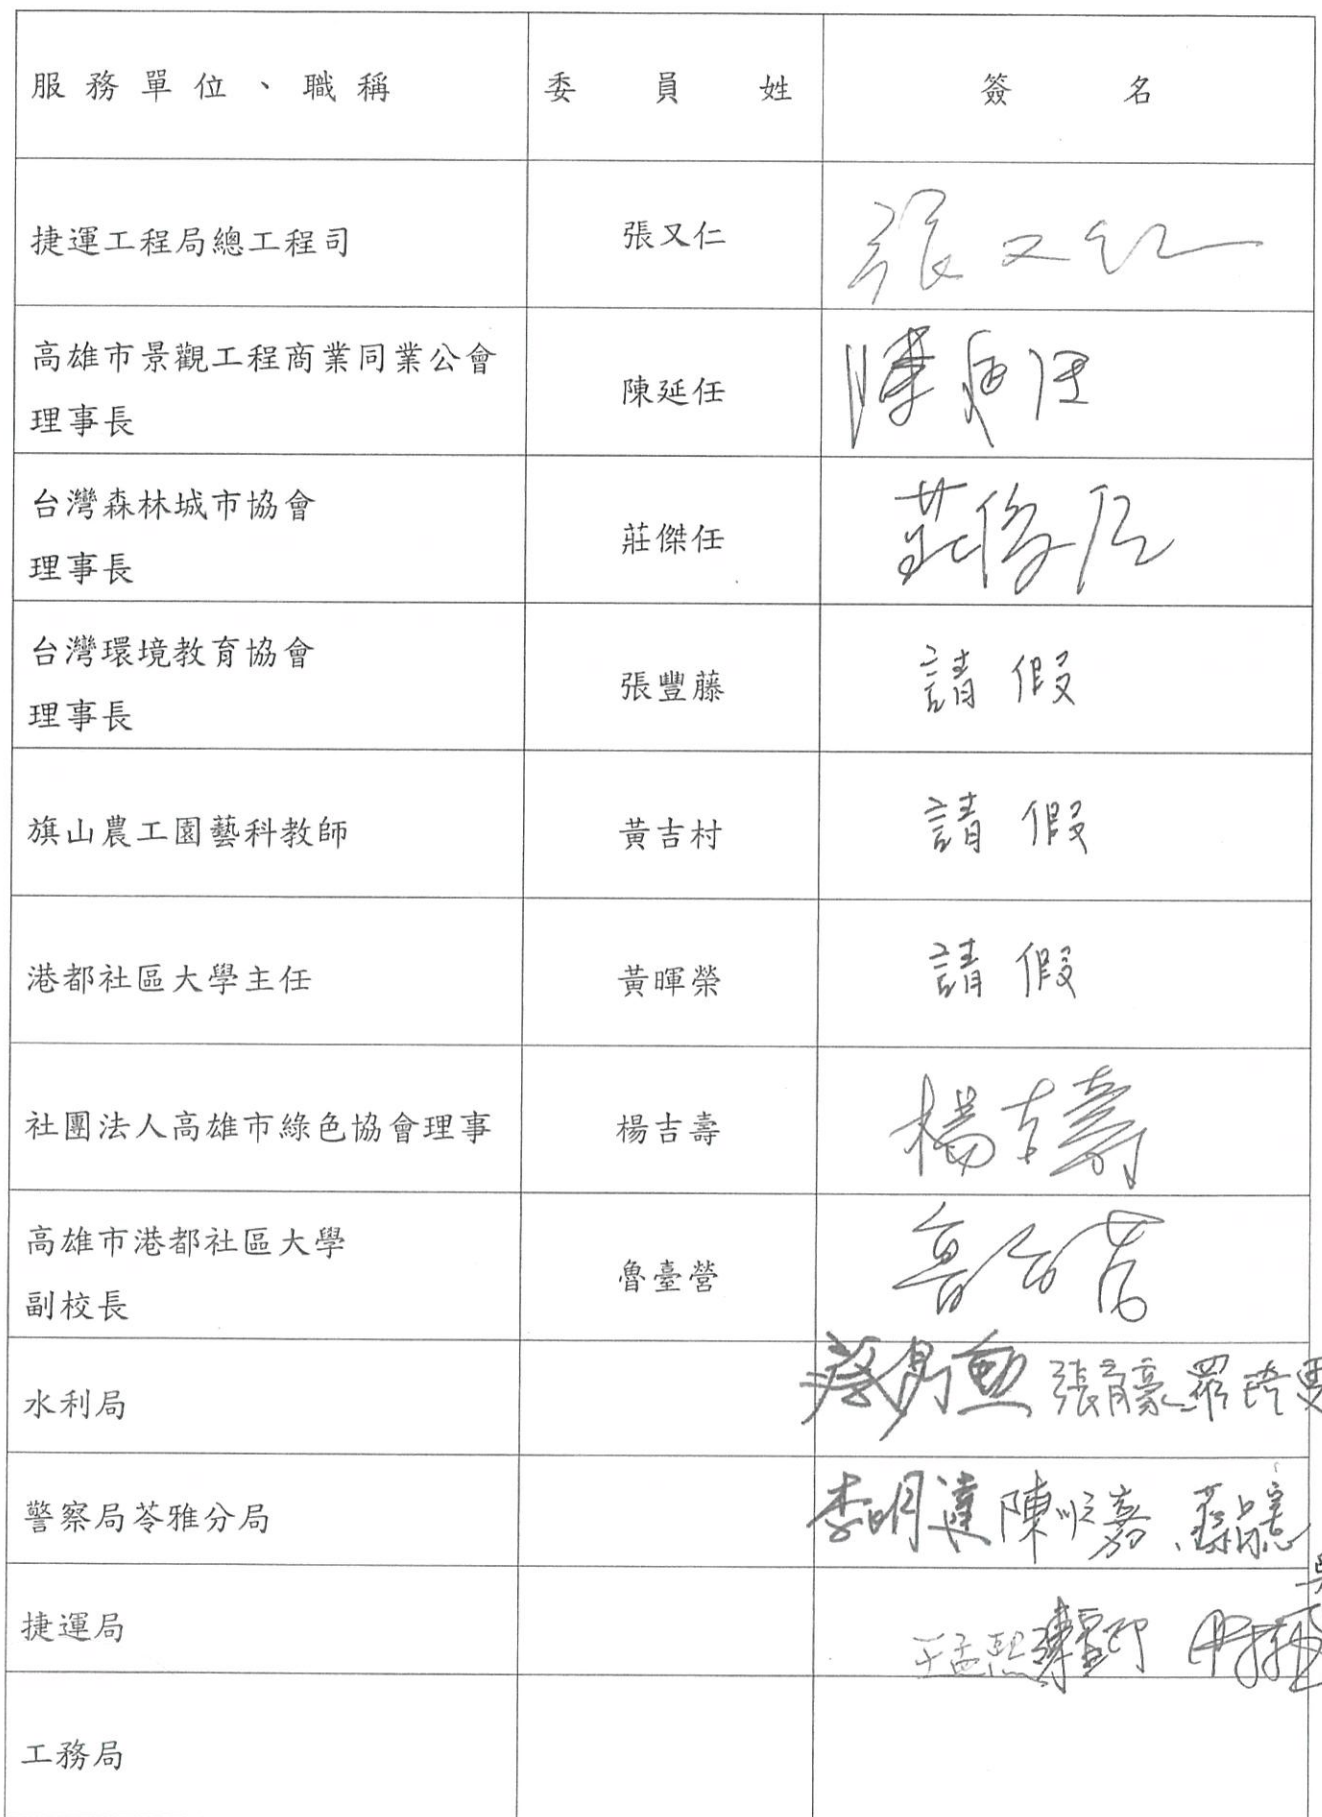 服務單位、職稱 委員姓 簽名
捷運工程局總工程司 張又仁 張又仁
高雄市景觀工程商業同業公會
理事長 陳延任 陳延任
台灣森林城市協會
理事長 莊傑任
台灣環境教育協會
理事長 張豐藤 請假
旗山農工園藝科教師 黃吉村 請假
港都社區大學主任 黃暉榮 請假
社團法人高雄市綠色協會理事 楊吉壽 楊吉壽
高雄市港都社區大學
副校長 魯臺營 魯台営
水利局
警察局苓雅分局 李明達 陳順嘉
捷運局
工務局